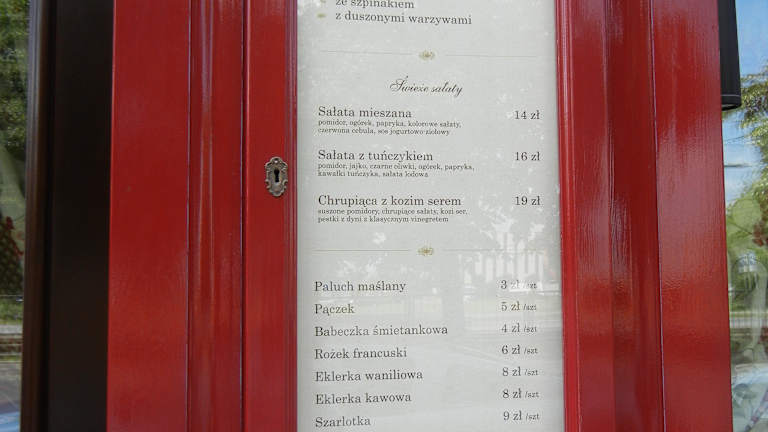 ze szpinakiem
z duszonymi warzywami
Świeże sałaty
Sałata mieszana 14 zł
pomidor, ogórek, papryka, kolorowe sałaty,
czerwona cebula, sos jogurtowo-ziołowy
Sałata z tuńczykiem 16 zł
pomidor, jajko, czarne oliwki, ogórek, papryka,
kawałki tuńczyka, sałata lodowa
Chrupiąca z kozim serem 19 zł
suszone pomidory, chrupiące sałaty, kozi ser,
pestki z dyni z klasycznym vinegretem
Paluch maślany 3 zł /szt
Pączek 5 zł /szt
Babeczka śmietankowa 4 zł /szt
Rożek francuski 6 zł /szt
Eklerka waniliowa 8 zł /szt
Eklerka kawowa 8 zł /szt
Szarlotka 9 zł /szt